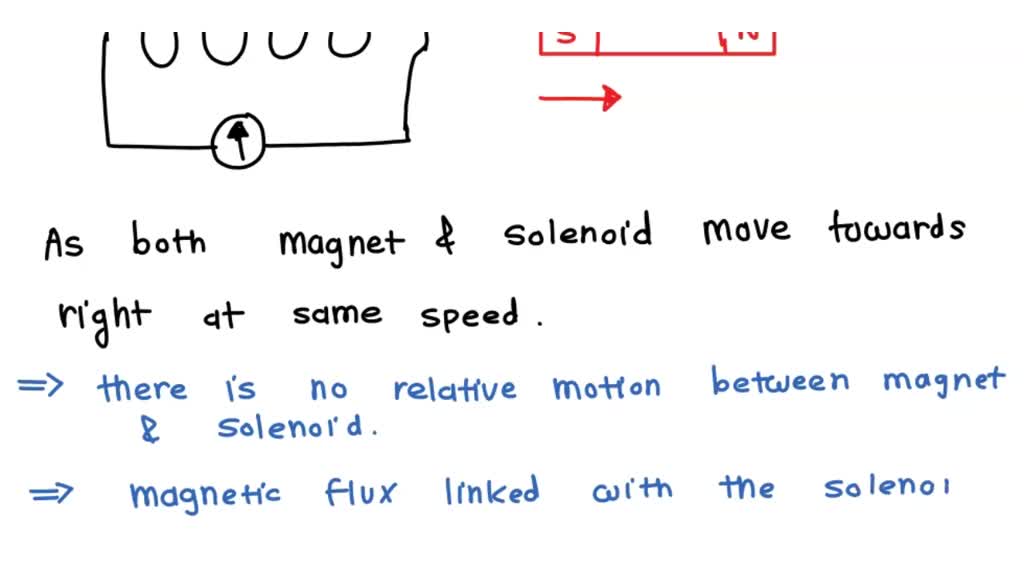 S N
As both magnet & solenoid move towards
right at same speed.
=> there is no relative motion between magnet
& solenoid.
=> magnetic flux linked with the solenoi